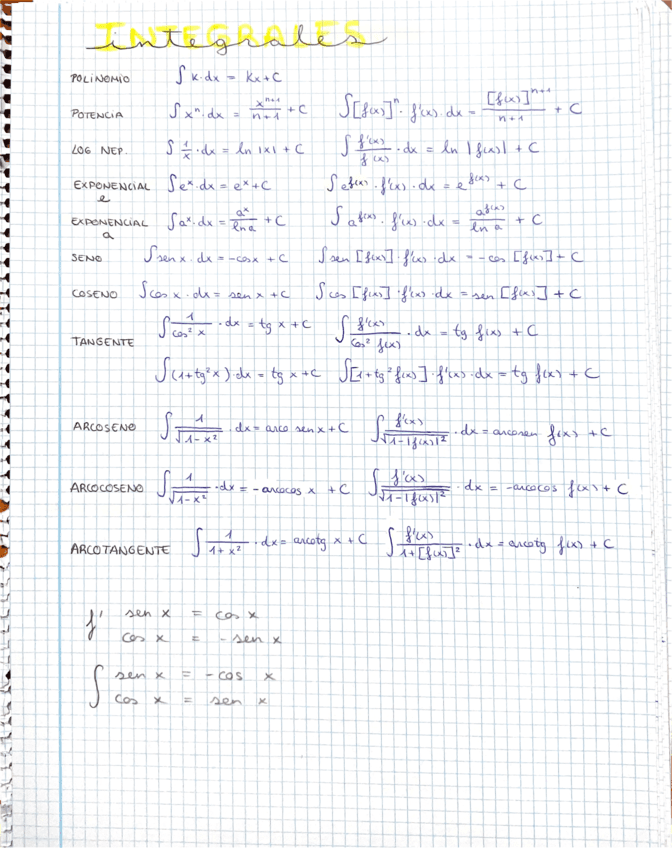 INTEGRALES
integrales
POLINOMIO ∫ k·dx = kx+C
POTENCIA ∫ xⁿ·dx = xⁿ⁺¹/n+1 + C ∫[f(x)]ⁿ·f'(x)·dx = [f(x)]ⁿ⁺¹/n+1 + C
LOG NEP. ∫ 1/x·dx = ln |x| + C ∫ f'(x)/f(x)·dx = ln |f(x)| + C
EXPONENCIAL e ∫eˣ·dx = eˣ+C ∫e^f(x)·f'(x)·dx = e^f(x) + C
EXPONENCIAL a ∫aˣ·dx = aˣ/ln a + C ∫ a^f(x)·f'(x)·dx = a^f(x)/ln a + C
SENO ∫sen x·dx = -cosx + C ∫sen [f(x)]·f'(x)·dx = -cos [f(x)] + C
COSENO ∫cos x·dx = sen x + C ∫cos [f(x)]·f'(x)·dx = sen [f(x)] + C
TANGENTE ∫ 1/cos² x·dx = tg x + C ∫ f'(x)/cos² f(x)·dx = tg f(x) + C
∫(1+tg²x)·dx = tg x + C ∫[1+tg²f(x)]·f'(x)·dx = tg f(x) + C
ARCOSENO ∫ 1/√1-x²·dx = arco sen x + C ∫ f'(x)/√1-|f(x)|²·dx = arcosen f(x) + C
ARCOCOSENO ∫ 1/√1-x²·dx = -arcocos x + C ∫ f'(x)/√1-|f(x)|²·dx = -arcocos f(x) + C
ARCOTANGENTE ∫ 1/1+x²·dx = arcotg x + C ∫ f'(x)/1+[f(x)]²·dx = arcotg f(x) + C
f' sen x = cos x
cos x = -sen x
∫ sen x = -cos x
cos x = sen x